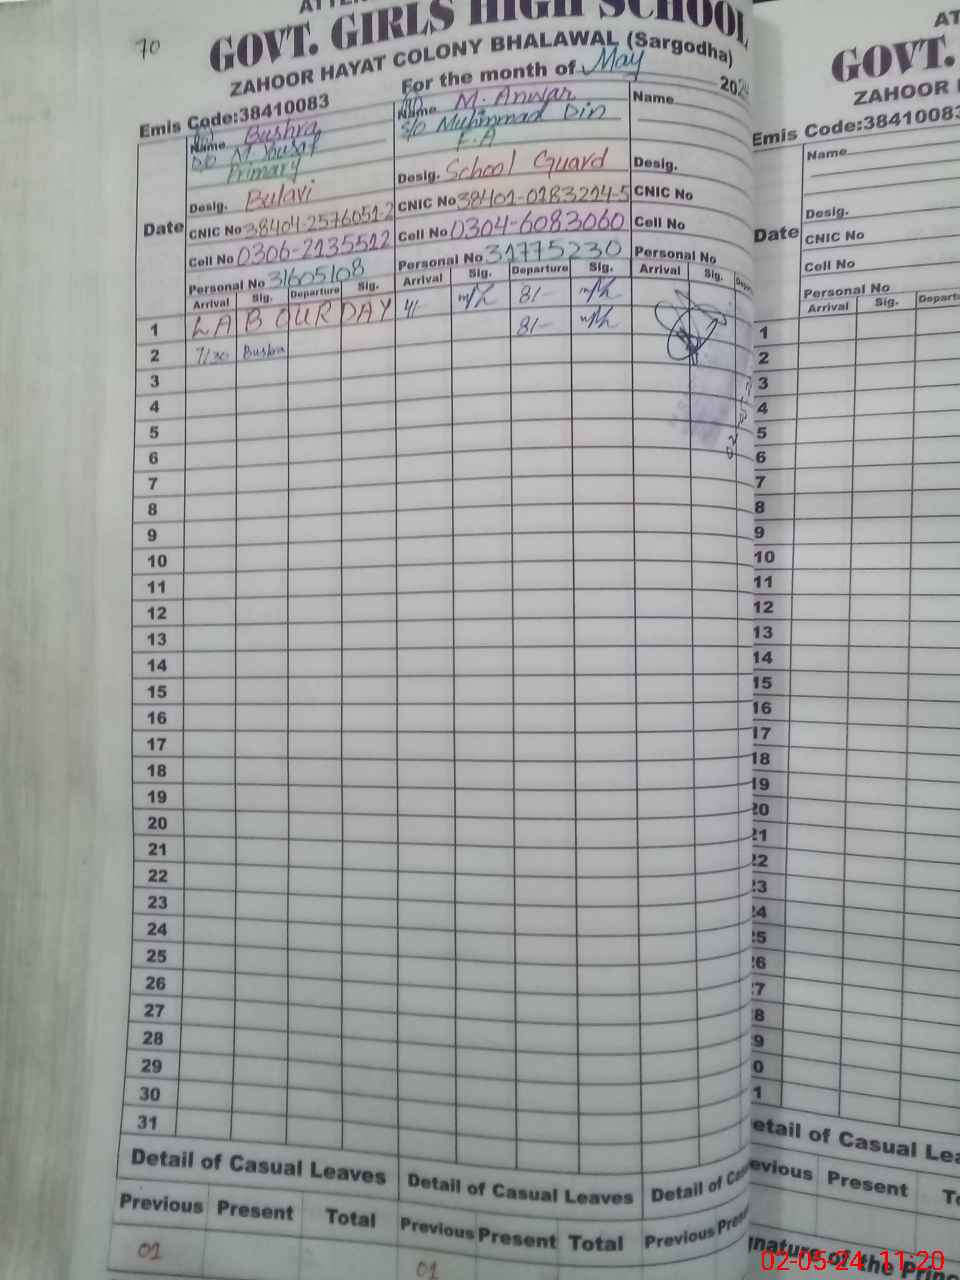 70
GOVT. GIRLS HIGH SCHOOL
ZAHOOR HAYAT COLONY BHALAWAL (Sargodha)
For the month of May 202
Emis Code:38410083
Name Bushra
D/o M. Yousaf
Primary
Desig. Bulavi
CNIC No 38404-2576051-2
Cell No 0306-2135512
Personal No 31605108
Name M. Anwar
S/o Muhmmad Din
F.A
Desig. School Guard
CNIC No 38401-0183214-5
Cell No 0304-6083060
Personal No 31775230
Name
Desig.
CNIC No
Cell No
Personal No
Date Arrival Sig. Departure Sig. Arrival Sig. Departure Sig. Arrival Sig.
1 LABOUR DAY 4/- 8/-
2 7/30 Bushra 8/-
3
4
5
6
7
8
9
10
11
12
13
14
15
16
17
18
19
20
21
22
23
24
25
26
27
28
29
30
31
Detail of Casual Leaves Detail of Casual Leaves Detail of
Previous Present Total Previous Present Total Previous
01 01
GOVT.
ZAHOOR
Emis Code:38410083
Name
Desig.
Date CNIC No
Cell No
Personal No
Arrival Sig.
1
2
3
4
5
6
7
8
9
10
11
12
13
14
15
16
17
18
19
20
21
22
23
24
25
26
27
28
29
30
31
etail of Casual Lea
evious Present
nature of the
02-05-24 11:20